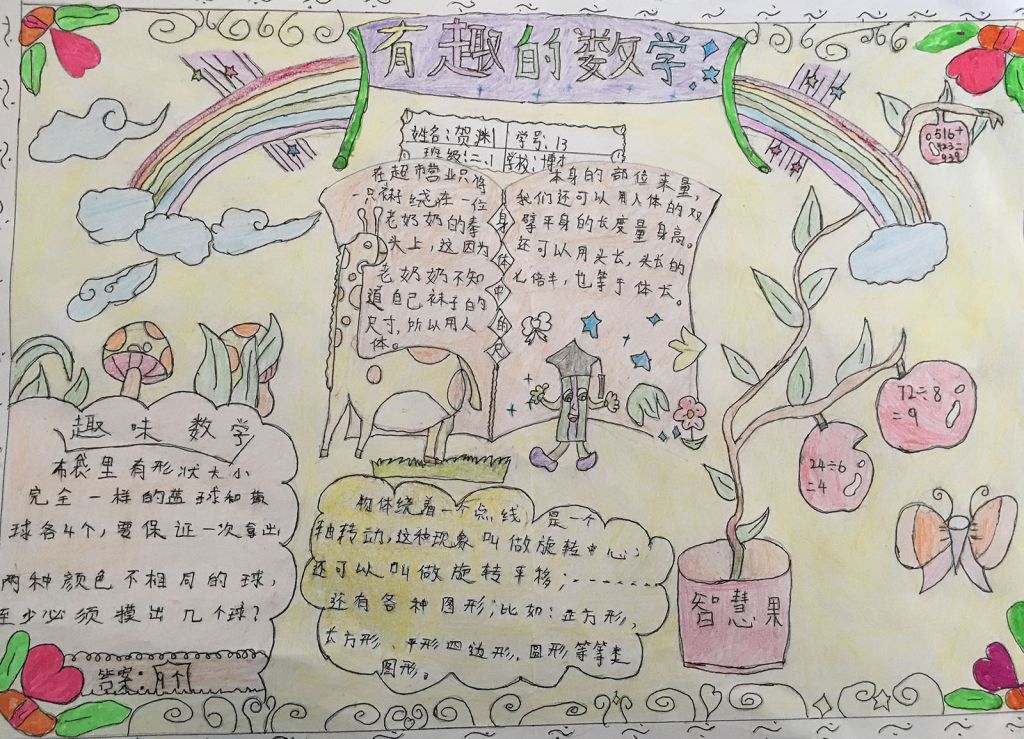 有趣的数学
姓名:贺渊 学号:13
班级:二.1 学校:博才
在超市营业只将
一只袜子绕在一位
老奶奶的拳
头上,这因为
老奶奶不知
道自己袜子的
尺寸,所以用人
体。
身体中的尺
本身的部位来量,
我们还可以用人体的双
臂平身的长度量身高。
还可以用头长,头长的
七倍半,也等于体长。
516+
423=
939
72÷8
=9
24÷6
=4
智慧果
趣味数学
布袋里有形状大小
完全一样的蓝球和黄
球各4个,要保证一次拿出
两种颜色不相同的球,
至少必须摸出几个球?
答案:
物体绕着一个点,线,是一个
轴转动,这种现象叫做旋转中心;
还可以叫做旋转平移;--------
还有各种图形;比如:正方形,
长方形、平形四边形,圆形,等等
图形。